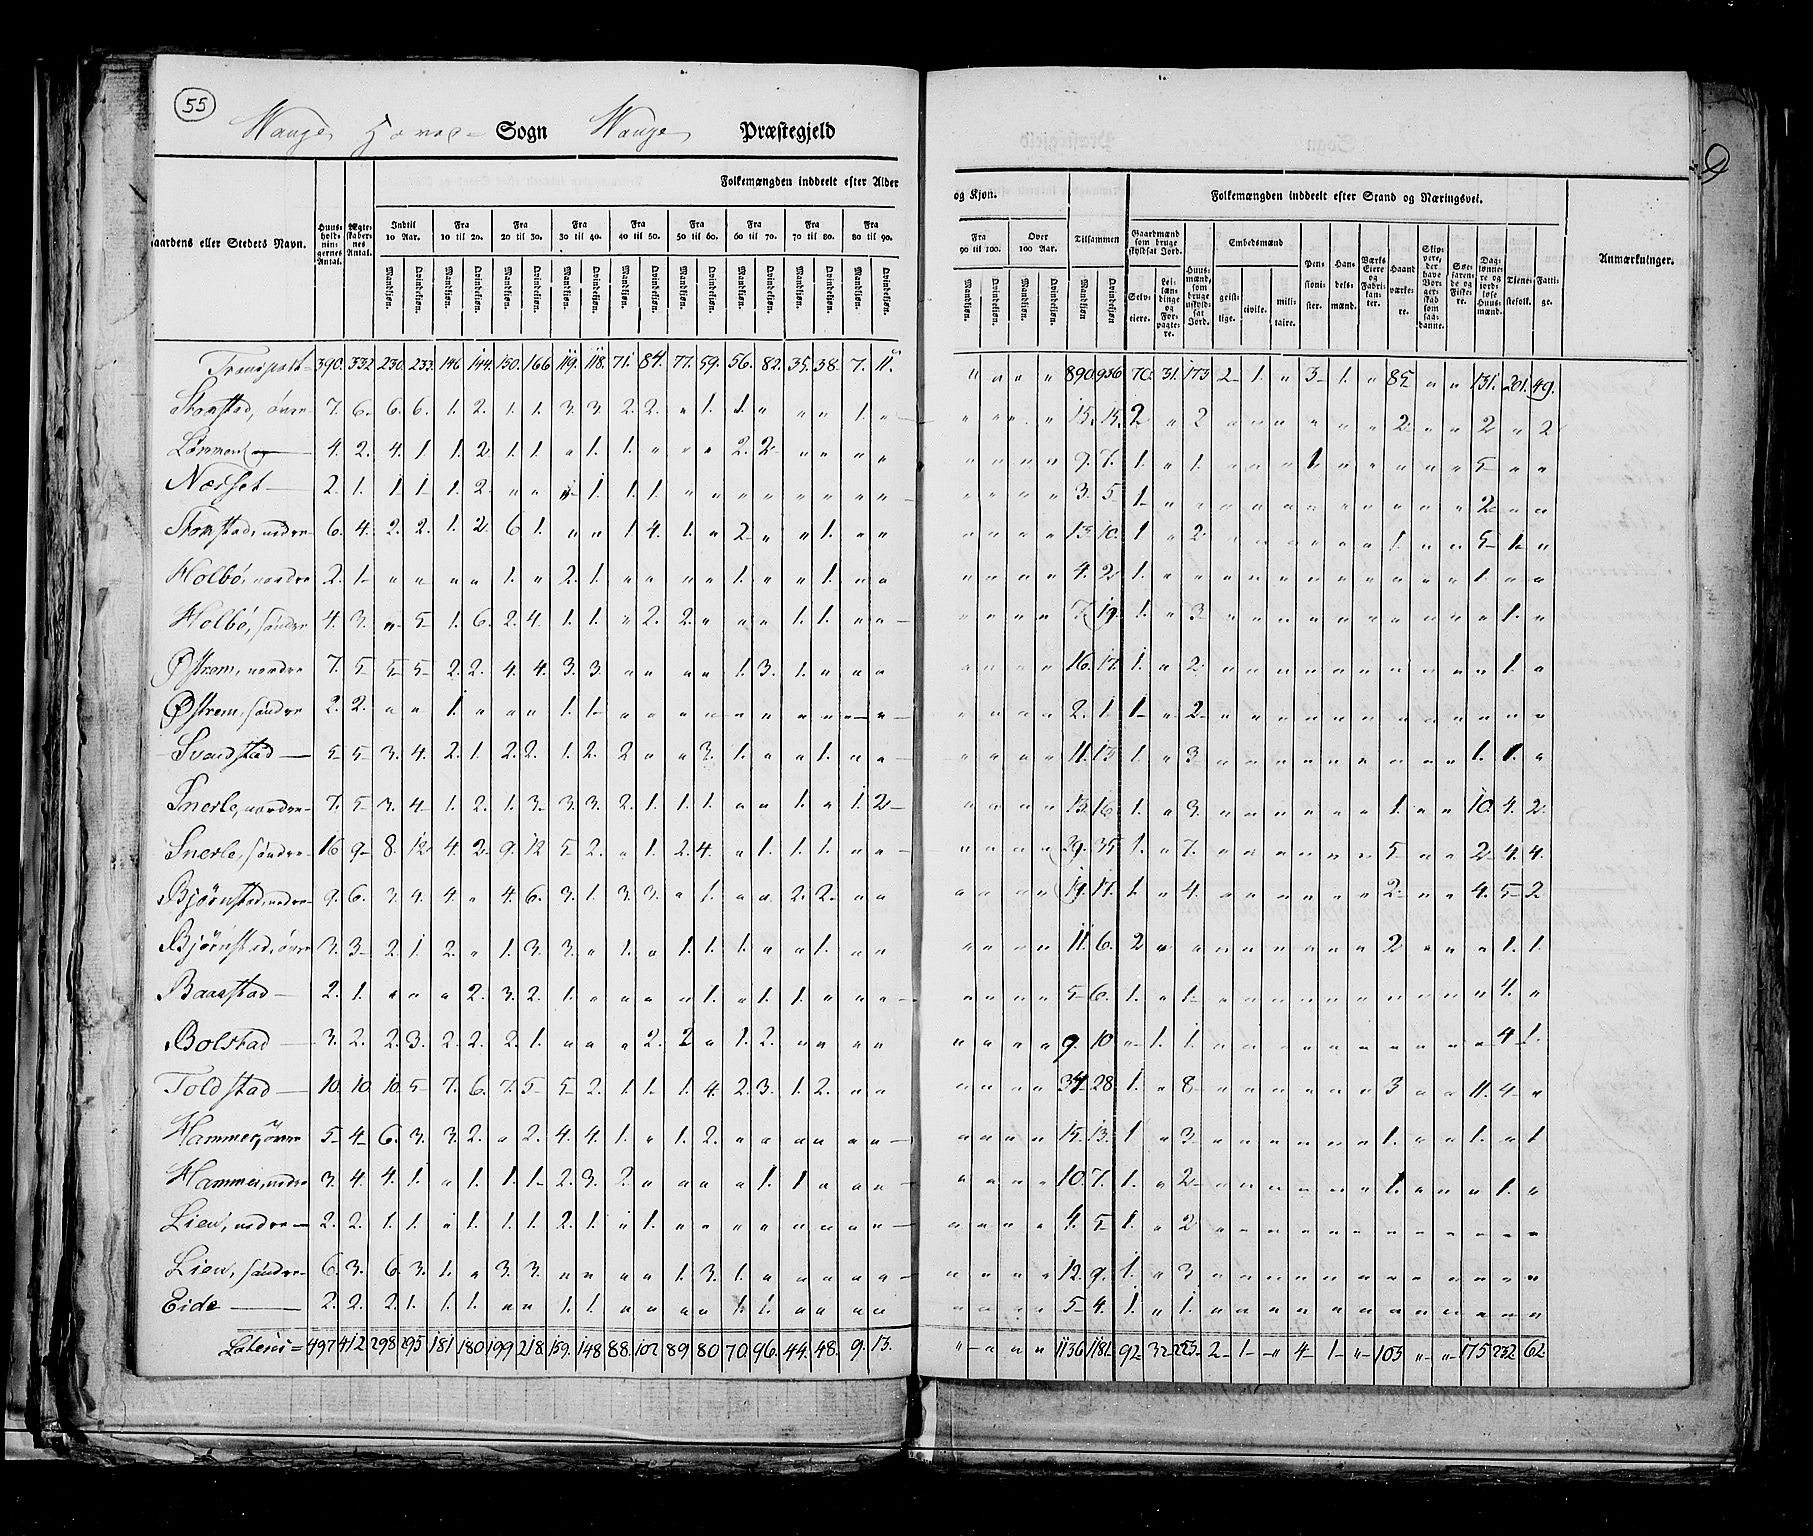 55
Wange Hoved- Sogn Wange Præstegjeld
Gaardens eller Stedets Navn. Huusholdningernes Antal. Ægteskabernes Antal. Folkemængden inddeelt efter Alder og Kjøn. Tilsammen Folkemængden inddeelt efter Stand og Næringsvei. Anmærkninger.
Indtil 10 Aar. Fra 10 til 20. Fra 20 til 30. Fra 30 til 40. Fra 40 til 50. Fra 50 til 60. Fra 60 til 70. Fra 70 til 80. Fra 80 til 90. Fra 90 til 100. Over 100 Aar.
Mandkjøn. Qvindekjøn.
Gaardmænd som bruge skyldsat Jord. Selveiere. Leilændinge og Forpagtere. Huusmænd, som bruge uskyldsat Jord. Embedsmænd geistlige. civile. militaire. Pensionister. Handelsmænd. Værks Eiere og Fabrikanter. Haandværkere. Skippere, der have Borgerskab som saadanne. Søefarende og Fiskere. Daglønnere og jordløse Huusmænd. Tienestefolk. Fattige.
Transport 390. 332 230. 233. 146 144. 150. 166 119. 118. 71. 84. 77. 59. 56. 82. 35. 38. 7. 11. " " " " 890. 936 70. 31. 173 2 1. " 3 1. " 85 " " 131. 201. 49.
Stamstad, övre 7. 6. 6. 6. 1. 2. 1. 1. 3. 3. 2. 2. " 1. 1. " " " 1. " " " " " 15. 15. 2 " 2 " " " " " " 2 " " 2 " 2
4. 2. 4. 1 1. 2 1. 1. " 1. 1. " " " 2. 2 " " " " " " " " 9. 7. 1. " 1. " " " 1 " " " " " 5 " "
Næsset 2. 1. 1. 1 1. 2. " " " 1. 1. 1. " " " " " " " " " " " " 3. 5 1. " " " " " " " " " " " 2 " "
Stamstad, nedre 6. 4. 2. 2. 1. 2. 6. 1. " " 1 4. 1. " 2 " " 1. " " " " " " 13. 10. 1 " 2 " " " " " " 1. " " 5 1. "
Holbö, nordre 2. 1 " " " " 1. " 2. 1. " " " " 1. " " 1. " " " " " " 4. 2 1. " " " " " " " " " " " 1. " "
Holbö, söndre 4. 3. " 5 1. 6. 2. 4. 1. 1. " 2. 2. " " " 1. 1. " " " " " " 7. 19. 1. " 3 " " " " " " " " " " 1. "
Østrem, nordre 7. 5 5 5 2. 2. 4. 4. 3. 3. " " " " 1. 3. 1. " " " " " " " 16. 17. 1. " 2 " " " " " " " " " " 1. "
Østrem, söndre 2. 2. " " 1. " " " 1. 1. " " " " " " " " " " " " " " 2. 1. 1 " 2 " " " " " " " " " " " "
Svarstad 5 5 3. 4. 2. 1. 2. 2. 1. 2. 2 " " 3. 1. " " 1. " " " " " " 11. 13 1. " 3 " " " " " " " " " 1. 1. "
Snerle, nordre 7. 5 3. 4 1. 2. 1. 3. 3. 3. 2. 1. 1. 1. " " 1. " 1. 2 " " " " 13. 16. 1. " 3. " " " " " " 1. " " 10. 4. 2.
Snerle, söndre 16 9 8. 12. 4. 2. 9. 12 5 2. " 1. 2. 4. " 1. 1. 1. " " " " " " 29. 35. 1. " 7. " " " " " " 5 " " 2 4. 4.
Bjørnstad, nedre 9. 6. 3. 4. 4. " 4. 6. 3. 1. 3. 3. " 1. " " 2. 2. " " " " " " 19. 17. 1. " 4. " " " " " " 2. " " 4. 5 2.
Bjørnstad, övre 3. 3 2. 1. 2. " 1. 3. 3. " 1. " 1. 1. 1. " " 1. " " " " " " 11. 6. 2 " " " " " " " " 2 " " " 1. 1.
Baarstad 2. 1. " " " 2. 3. 2. 1. " " " " 1. " 1. 1. " " " " " " " 5 6. 1. " 1 " " " " " " " " " " 4. "
Bolstad 3. 2. 2. 3. 2. 2. 2. 1. " " " 2. 2 " 1. 2. " " " " " " " " 9. 10 " 1. 1. " " " " " " " " " " 4 1.
Toldstad 10. 10. 10. 5 7. 6. 7. 5 5 2. 1. 1. 1. 4. 2. 3. 1. 2. " " " " " " 34 28. 1. " 8 " " " " " " 3 " " 11. 4 "
Hammer, övre 5 4 6. 3. 3. 2. " 2. 4. 4. 1. " 1. 2. " " " " " " " " " " 15. 13. 1 " 3 " " " " " " 1. " " 1. " 1
Hammer, nedre 3. 4. 4. 1. " 1. 1. 1 2. 3. 2. " " " " 1. 1 " " " " " " " 10. 7. 1. " 2 " " " " " " 1. " " " 1. "
Lien, nedre 2. 2. 1. 1. " 1. 1. 1. 2. 1. " 1. " " " " " " " " " " " " 4. 5 1. " 2 " " " " " " " " " " " "
Lien, söndre 6. 3. 6. 3. 1. " 3. 3. " " " " 1. 3. 1. " " " " " " " " " 12. 9. 1. " 3 " " " " " " " " " " " "
Eide 2. 2. 2. 1. 1. 1. " " 1. 1. " " " " 1. 1. " " " " " " " " 5 4. 1. " 1. " " " " " " " " " " " "
Lateris 497 412 298 295 181 180 199 218. 159. 148 88. 102 89 80 70. 96. 44. 48. 9. 13. " " " " 1136 1181. 92 32 223 2 1 " 4 1 " 103 " " 175 232 62